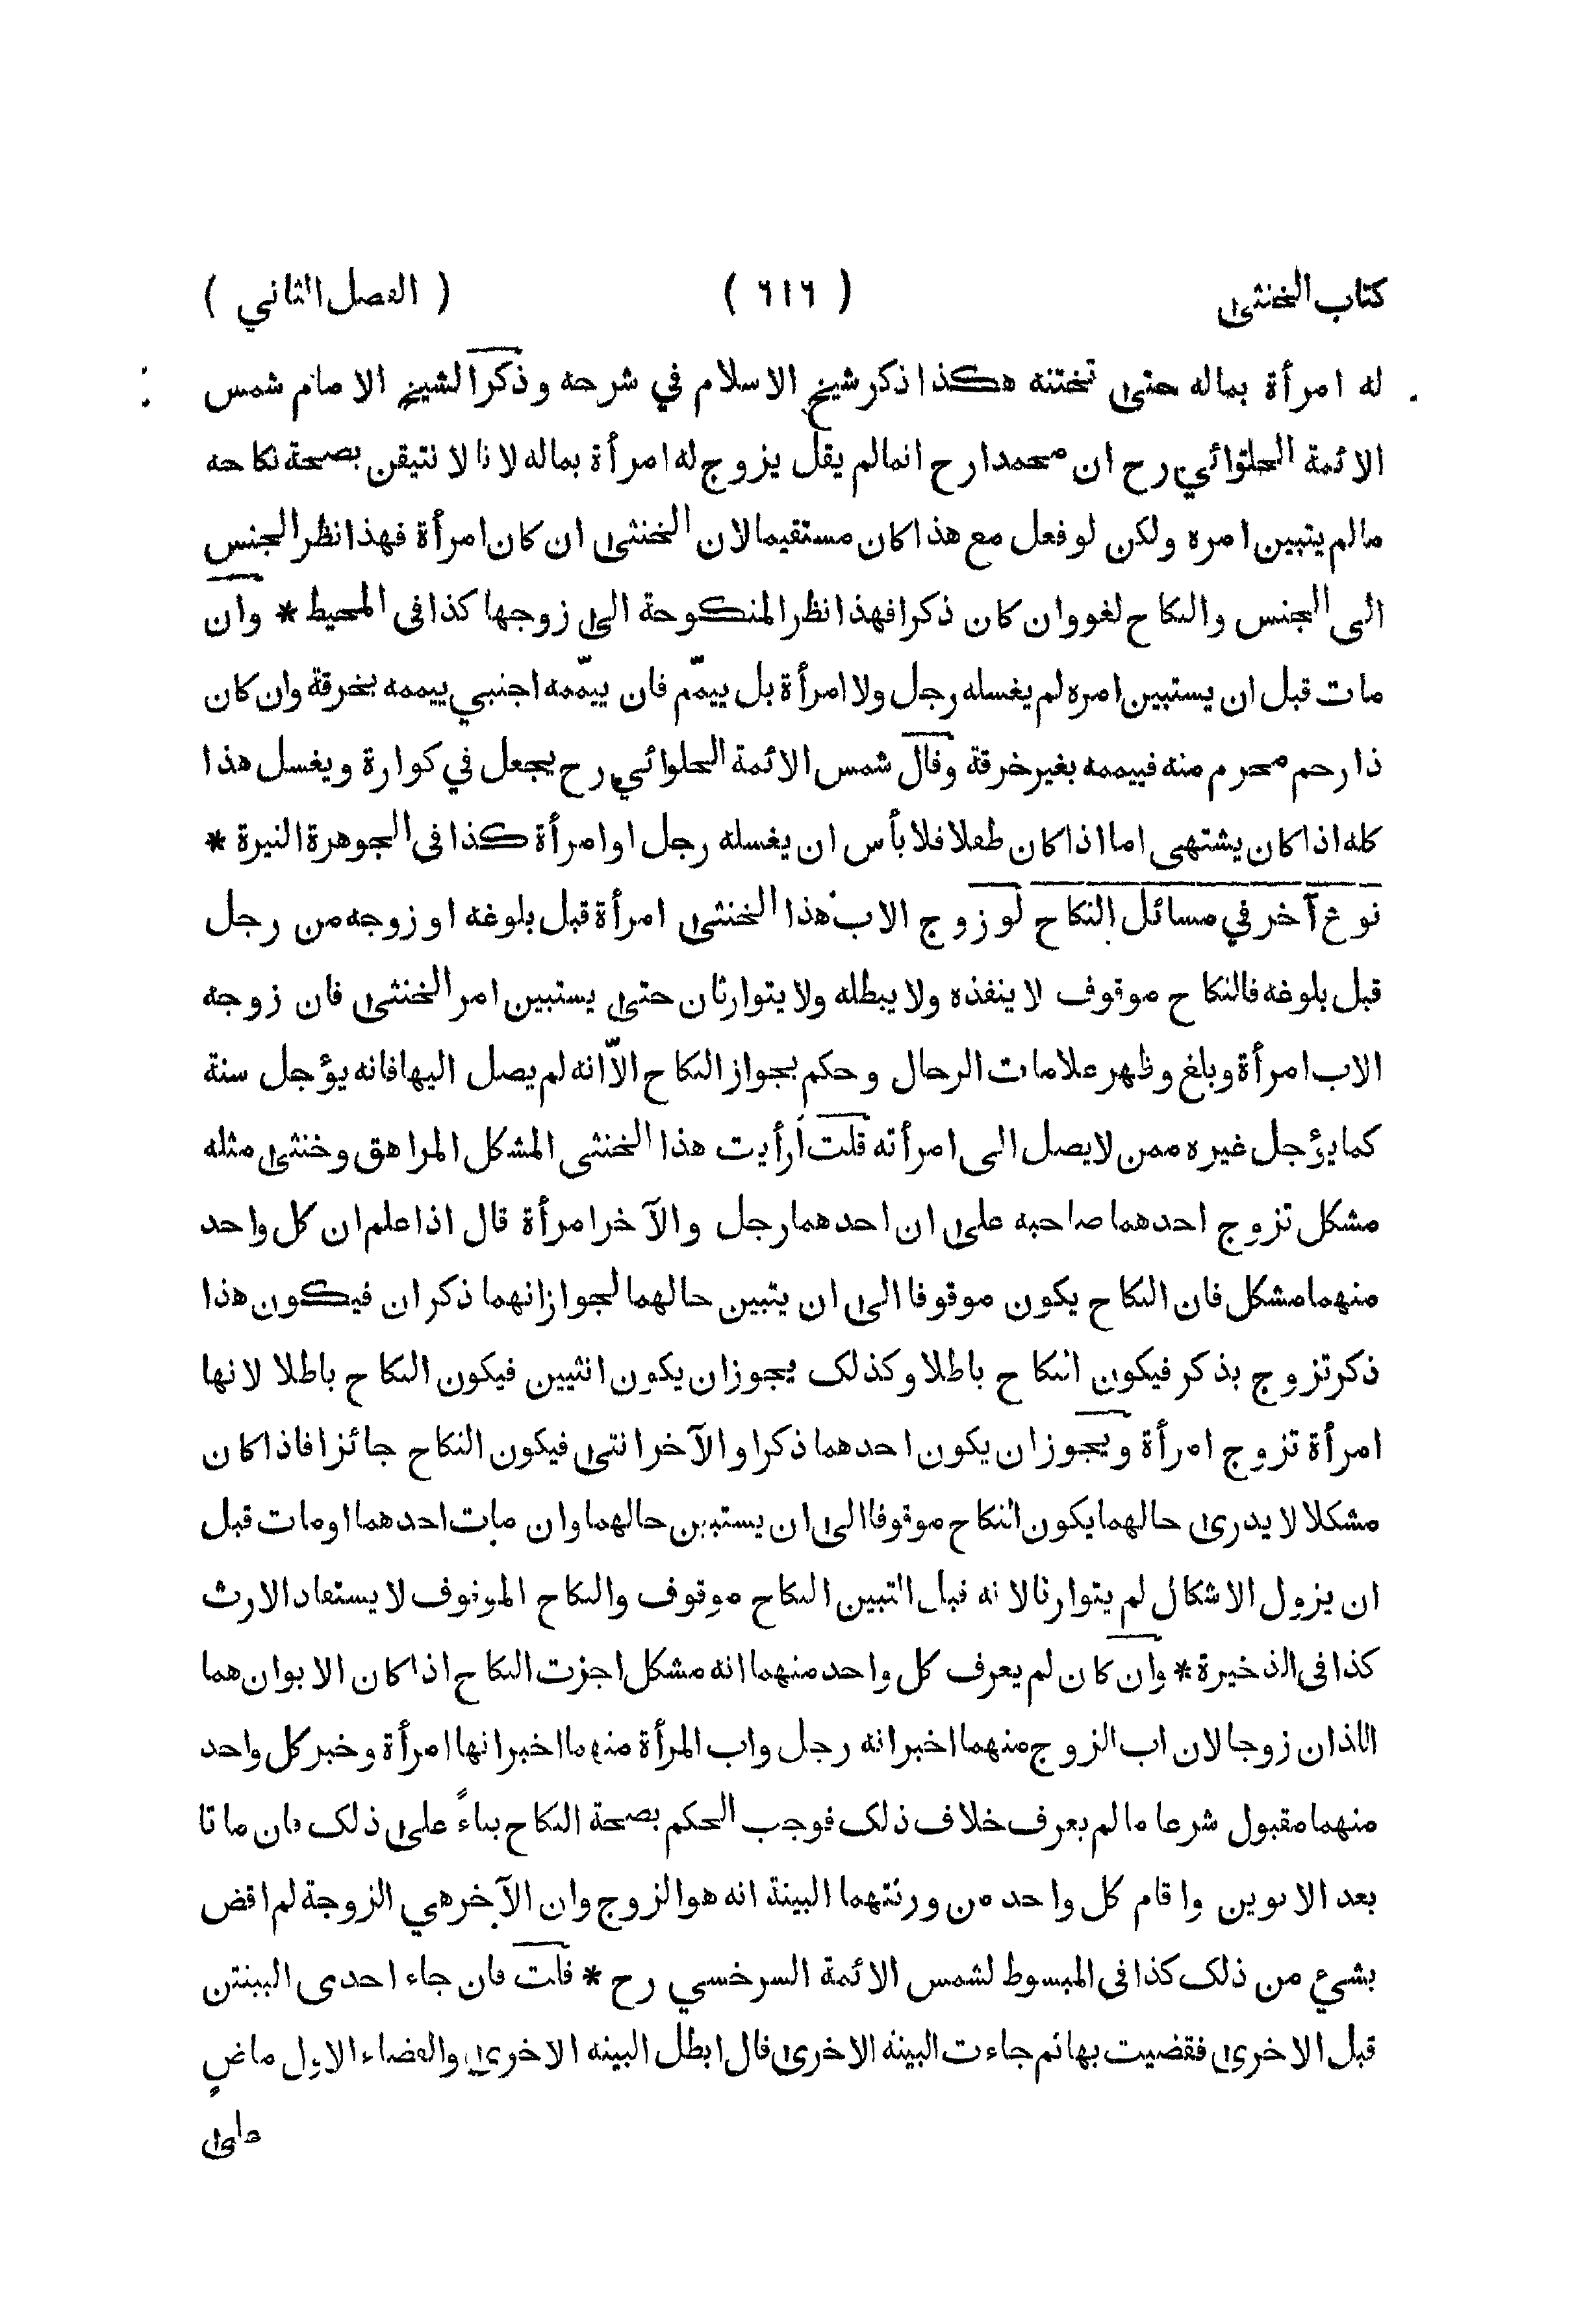 كتاب الخنثى ( ٦١٦ ) ( الفصل الثاني )
له امرأة بماله حتى تختنه هكذا ذكر شيخ الاسلام في شرحه وذكر الشيخ الامام شمس
الائمة الحلوائي رح ان محمدا رح انما لم يقل يزوج له امرأة بماله لانا لا نتيقن بصحة نكاحه
مالم يتبين امره ولكن لو فعل مع هذا كان مستقيما لان الخنثى ان كان امرأة فهذا نظر الجنس
الى الجنس والنكاح لغو وان كان ذكرا فهذا نظر المنكوحة الى زوجها كذا فى المحيط * وان
مات قبل ان يستبين امره لم يغسله رجل ولا امرأة بل ييمّم فان ييمّمه اجنبي ييممه بخرقة وان كان
ذا رحم محرم منه فييممه بغير خرقة وقال شمس الائمة الحلوائي رح يجعل في كوارة ويغسل هذا
كله اذا كان يشتهى اما اذا كان طفلا فلا بأس ان يغسله رجل او امرأة كذا فى الجوهرة النيرة *
نوع آخر في مسائل النكاح لو زوج الاب هذا الخنثى امرأة قبل بلوغه او زوجه من رجل
قبل بلوغه فالنكاح موقوف لا ينفذه ولا يبطله ولا يتوارثان حتى يستبين امر الخنثى فان زوجه
الاب امرأة وبلغ وظهر علامات الرجال وحكم بجواز النكاح الاّ انه لم يصل اليها فانه يؤجل سنة
كما يؤجل غيره ممن لا يصل الى امرأته قلت أرأيت هذا الخنثى المشكل المراهق وخنثى مثله
مشكل تزوج احدهما صاحبه على ان احدهما رجل والآخر امرأة قال اذا علم ان كل واحد
منهما مشكل فان النكاح يكون موقوفا الى ان يتبين حالهما لجواز انهما ذكران فيكون هذا
ذكر تزوج بذكر فيكون النكاح باطلا وكذلك يجوز ان يكون انثيين فيكون النكاح باطلا لانها
امرأة تزوج امرأة ويجوز ان يكون احدهما ذكرا والآخر انثى فيكون النكاح جائزا فاذا كان
مشكلا لا يدرى حالهما يكون النكاح موقوفا الى ان يستبين حالهما وان مات احدهما او مات قبل
ان يزول الاشكال لم يتوارثا لانه قبل التبين النكاح موقوف والنكاح الموقوف لا يستفاد الارث
كذا فى الذخيرة * وان كان لم يعرف كل واحد منهما انه مشكل اجزت النكاح اذا كان الابوان هما
اللذان زوجا لان اب الزوج منهما اخبر انه رجل واب المرأة منهما اخبر انها امرأة وخبر كل واحد
منهما مقبول شرعا ما لم يعرف خلاف ذلك فوجب الحكم بصحة النكاح بناءً على ذلك فان ماتا
بعد الابوين واقام كل واحد من ورثتهما البينة انه هو الزوج وان الآخر هي الزوجة لم اقض
بشيء من ذلك كذا فى المبسوط لشمس الائمة السرخسي رح * قلت فان جاء احدى البينتن
قبل الاخرى فقضيت بها ثم جاءت البينة الاخرى قال ابطل البينه الاخرى والقضاء الاول ماضٍ
على